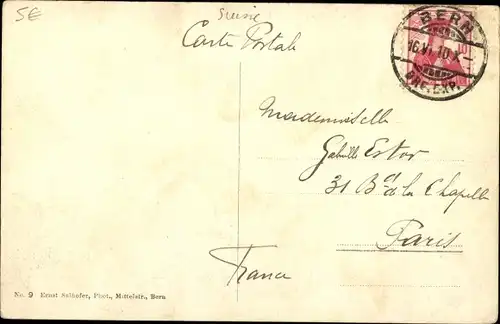 5€
Suisse
Carte Postale
BERN
16.VI.10.X-
BRF.EXP.
10
Mademoiselle
Gabrielle Estor
31 Bd de la Chapelle
Paris
France
No. 9 Ernst Selhofer, Phot., Mittelstr., Bern